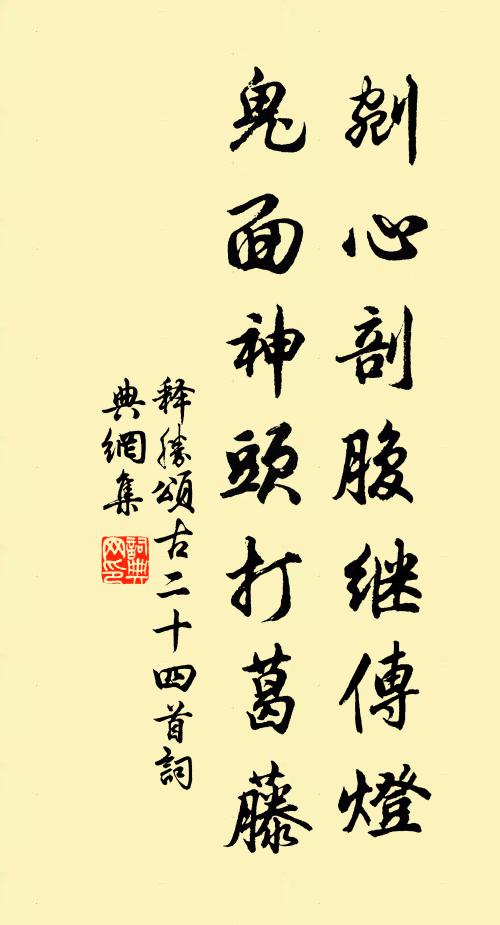 剜心剖腹继傳燈
鬼面神頭打葛藤
释勝頌古二十四首詞
典網集
詞典网印